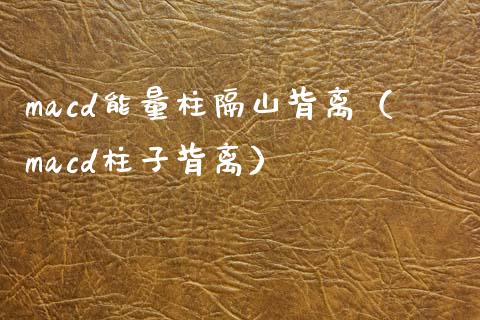 macd能量柱隔山背离（
macd柱子背离）